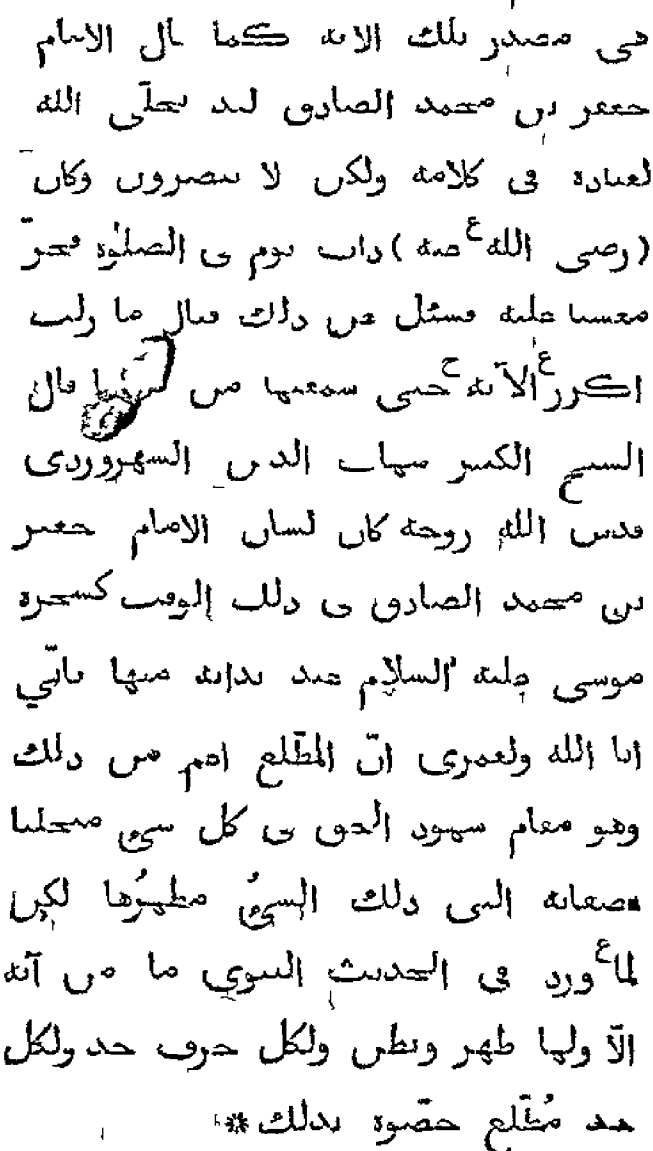 فى مصدر تلك الاية كما قال الامام
جعفر بن محمد الصادق لقد تجلّى الله
لعباده فى كلامه ولكن لا يبصرون وكان
(رضى الله ع عنه) ذات يوم فى الصلوة فخرّ
مغشيا عليه فسئل عن ذلك فقال ما زلت
اكرر ع الآية ح حتى سمعتها من قال
الشيخ الكبير شهاب الدين السهروردى
قدس الله روحه كان لسان الامام جعفر
بن محمد الصادق فى ذلك الوقت كشجرة
موسى عليه السلام عند ندائه منها بانّي
انا الله ولعمرى انّ المطّلع اعم من ذلك
وهو مقام شهود الحق فى كل شىء متجليا
بصفاته التى ذلك الشىءُ مظهرُها لكن
لما ع ورد فى الحديث النبوي ما من آية
الّا ولها ظهر وبطن ولكل حرف حد ولكل
حد مُطّلع خصّوه بذلك *